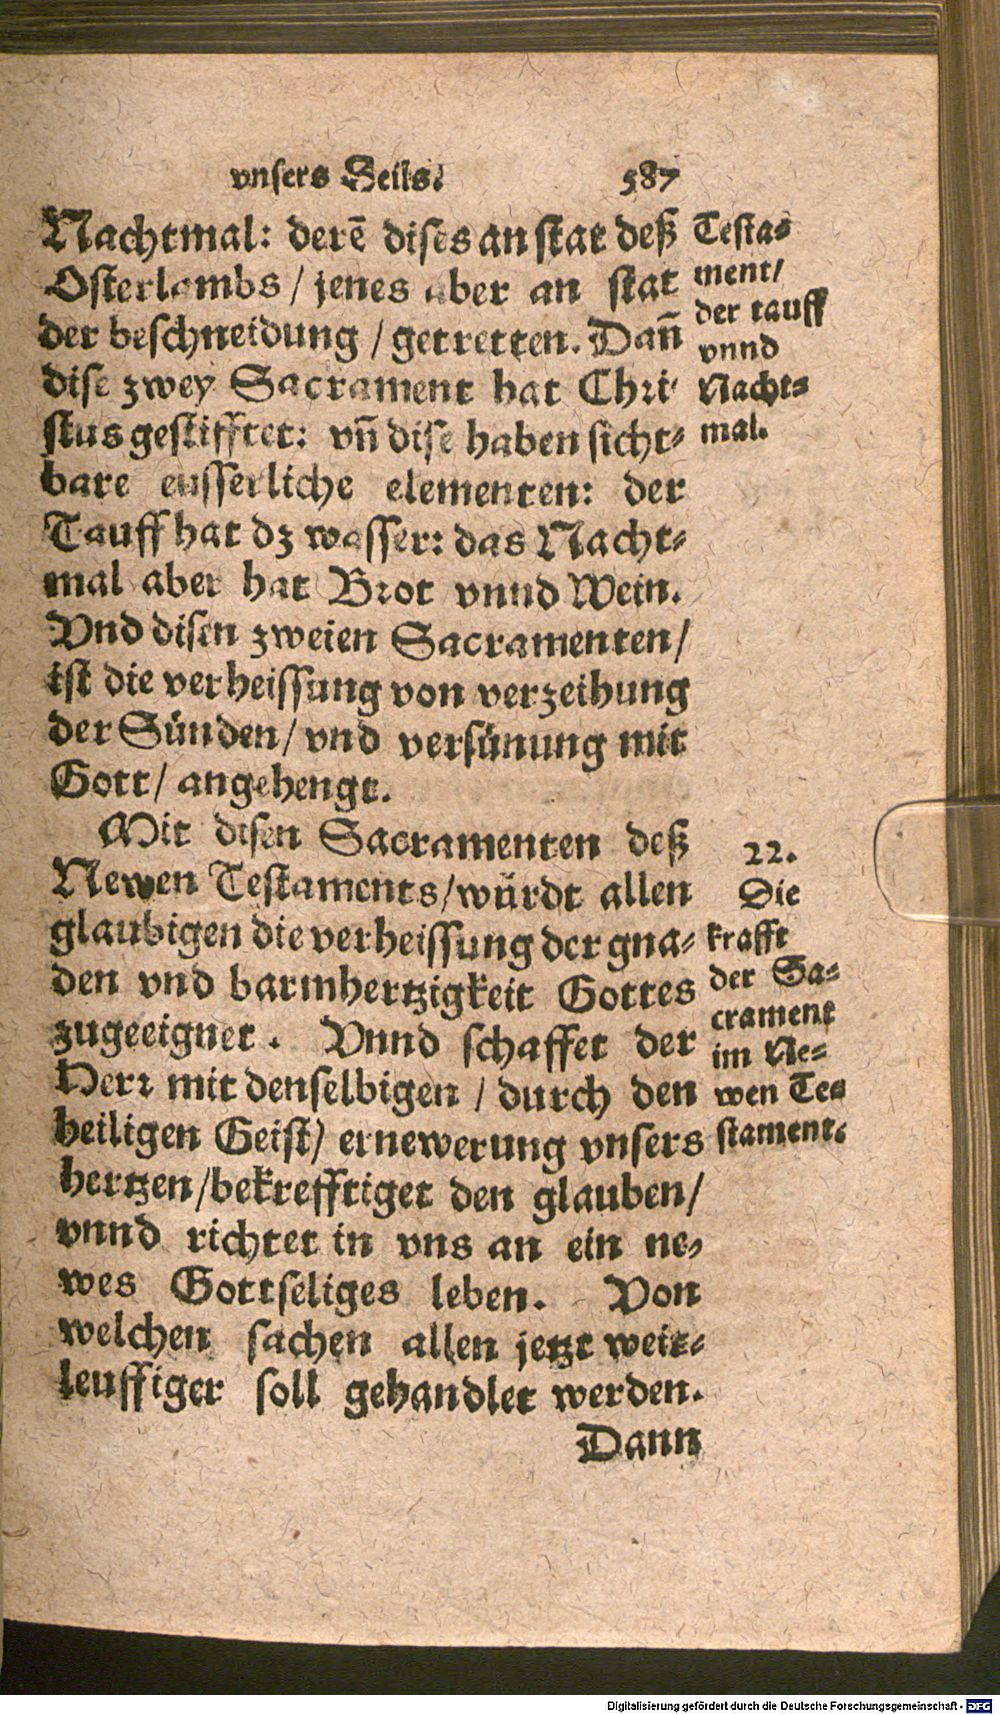 vnsers Heils. 587
Nachtmal: derē dises an stat deß
Osterlambs / jenes aber an stat
der beschneidung / getretten. Dañ
dise zwey Sacrament hat Chri-
stus gestifftet: vñ dise haben sicht-
bare eusserliche elementen: der
Tauff hat dz wasser: das Nacht-
mal aber hat Brot vnnd Wein.
Vnd disen zweien Sacramenten /
ist die verheissung von verzeihung
der Sünden / vnd versünung mit
Gott / angehengt.
Testa-
ment /
der tauff
vnnd
Nacht-
mal.
Mit disen Sacramenten deß
Newen Testaments / würdt allen
glaubigen die verheissung der gna-
den vnd barmhertzigkeit Gottes
zugeeignet. Vnnd schaffet der
Herr mit denselbigen / durch den
heiligen Geist / ernewerung vnsers
hertzen / bekrefftiget den glauben /
vnnd richtet in vns an ein ne-
wes Gottseliges leben. Von
welchen sachen allen jetzt weit-
leuffiger soll gehandlet werden.
22.
Die
krafft
der Sa-
crament
im Ne-
wen Te-
stament.
Dann
Digitalisierung gefördert durch die Deutsche Forschungsgemeinschaft - DFG